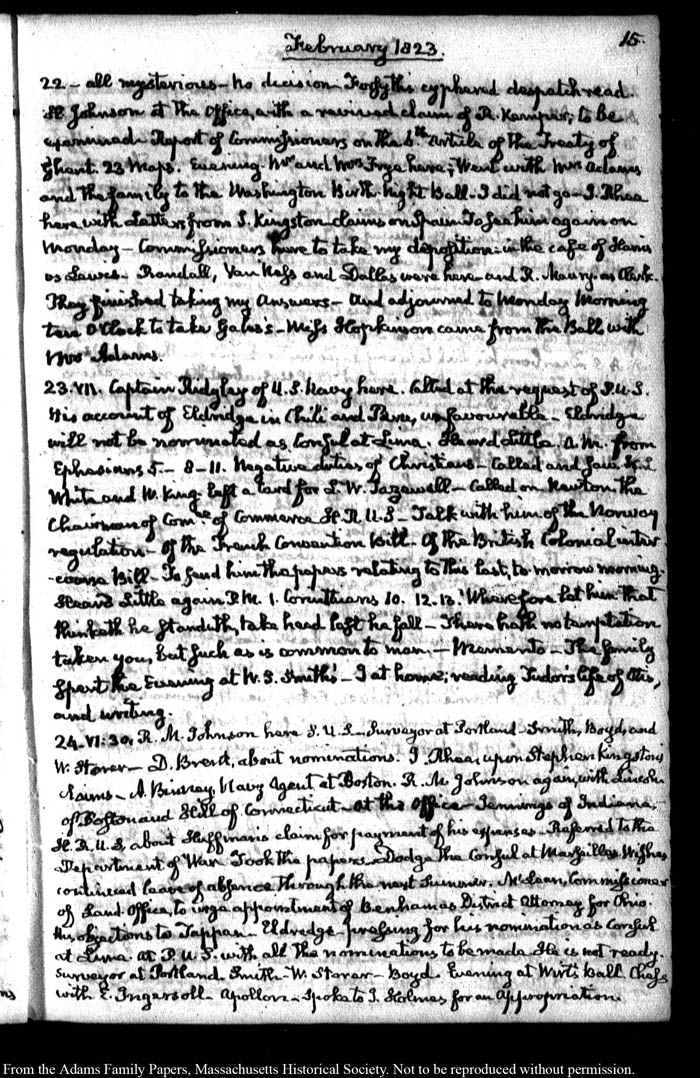 15.
February 1823.
22 - all mysterious - no decision Forsyth's cyphered despatch read.
Johnson at the Office, with a revised claim of R. Kemper; to be
examined. Report of Commissioners on the 6th Article of the Treaty of
Ghent. 23 Maps. Evening. Mr and Mrs Frye here; Went with Mrs Adams
and the family to the Washington Birth Night Ball. I did not go - J. Rhea
here with Letters from S. Kingston claims on Spain. To see him again on
Monday - Commissioners here to take my deposition in the case of Harris
vs Lewis. Randall, Van Ness and Dallas were here and R. Maury as Clerk.
They finished taking my Answers - And adjourned to Monday Morning
ten O'Clock to take Gales's - Miss Hopkinson came from the Ball with
Mrs Adams.
23. VII. Captain Ridgley of U.S. Navy here. Called at the request of P.U.S.
His account of Eldredge in Chili and Peru, unfavourable - Eldredge
will not be nominated as Consul at Lima. Heard Little. A.M. from
Ephesians 5 - 8-11. Negative duties of Christians - Called and saw
White and W. King. left a card for L. W. Tazewell - Called on Newton. the
Chairman of Comee of Commerce H.R.U.S - Talk with him of the Norway
regulation - Of the French Convention Bill. Of the British Colonial inter
-course Bill - To send him the papers relating to this last, to morrow morning.
Heard Little again P.M. 1. Corinthians 10. 12.13. Wherefore let him that
thinketh he standeth, take heed lest he fall - There hath no temptation
taken you, but such as is common to man. - Memento - The family
spent the Evening at W. S. Smith's - I at home; reading Tudor's life of Otis,
and writing.
24. VI. 30. R. M. Johnson here S.U.S - Surveyor at Portland Smith, Boyd, and
W. Storer - D. Brent, about nominations. J. Rhea upon Stephen Kingston's
claims - A. Binney, Navy Agent at Boston. R. M. Johnson again, with Lincoln
of Boston and Hill of Connecticut - at the Office - Jennings of Indiana,
H.R.U.S, about Huffman's claim for payment of his expenses - Referred to the
Department of War. Took the papers - Dodge the Consul at Marseilles Wishes
continued leave of absence through the next Summer. McLean, Commissioner
of Land Office, to urge appointment of Benham as District Attorney for Ohio.
His objections to Tappan - Eldredge - pressing for his nomination as Consul
at Lima. At P.U.S. with all the nominations to be made. He is not ready.
Surveyor at Portland. Smith - W. Storer - Boyd. Evening at Wirt's Ball. Chess
with E. Ingersoll. Apollon - Spoke to J. Holmes for an Appropriation.
From the Adams Family Papers, Massachusetts Historical Society. Not to be reproduced without permission.